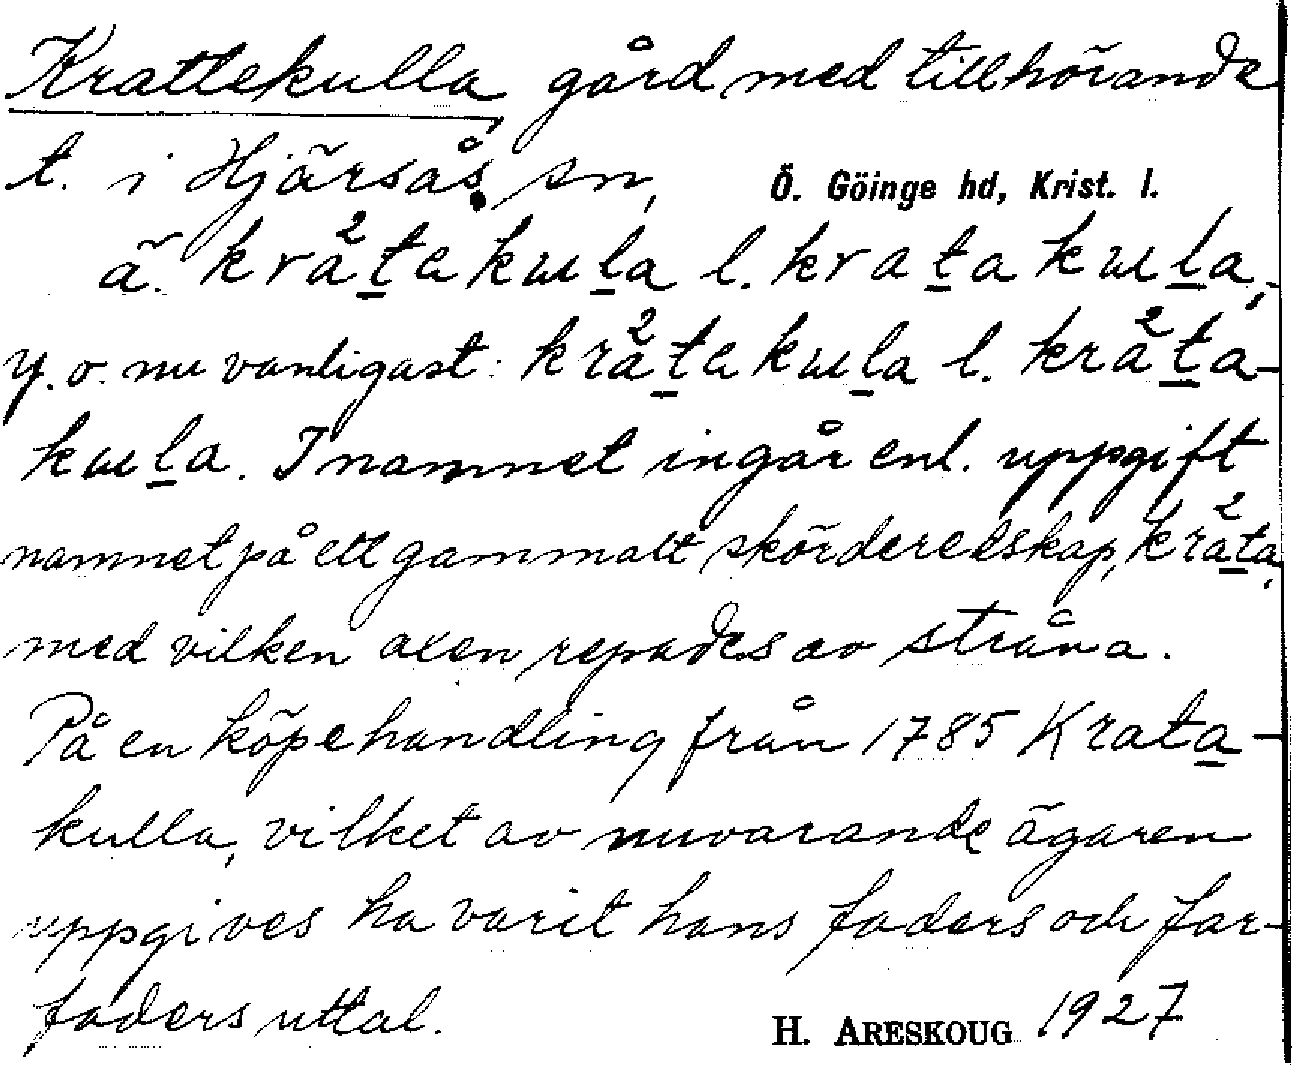 Krattekulla, gård med tillhörande
t. i Hjärsås sn, Ö. Göinge hd, Krist. l.
ä. kråtakɯla l. kratakɯla,
y. o. nu vanligast: kråtakɯla l. kråta-
kɯla. I namnet ingår enl. uppgift
namnet på ett gammalt skörderedskap, kråta,
med vilken axen repades av stråna.
På en köpehandling från 1785 Krata-
kulla, vilket av nuvarande ägaren
uppgives ha varit hans faders och far-
faders uttal. H. ARESKOUG 1927